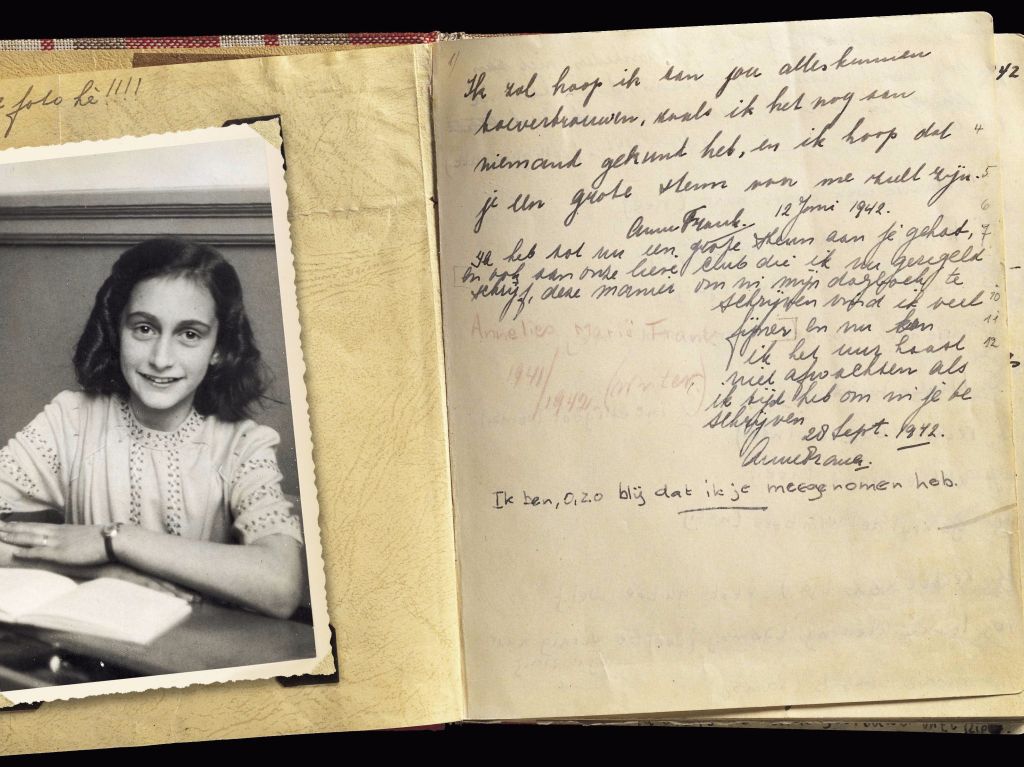 foto hè!!!!
Ik zal hoop ik aan jou alles kunnen
toevertrouwen, zoals ik het nog aan
niemand gekund heb, en ik hoop dat
je een grote steun voor me zult zijn.
Anne Frank. 12 Juni 1942.
Ik heb tot nu een grote steun aan je gehad,
en ook aan onze lieve club die ik nu geregeld
schrijf, deze manier om in mijn dagboek te
schrijven vind ik veel
fijner en nu kan
ik het uur haast
niet afwachten als
ik tijd heb om in je te
schrijven
28 Sept. 1942.
Anne Frank.
Annelies Marie Frank
1941/
1942.
Ik ben, o, zo blij dat ik je meegenomen heb.
42
4
5
6
7
10
11
12